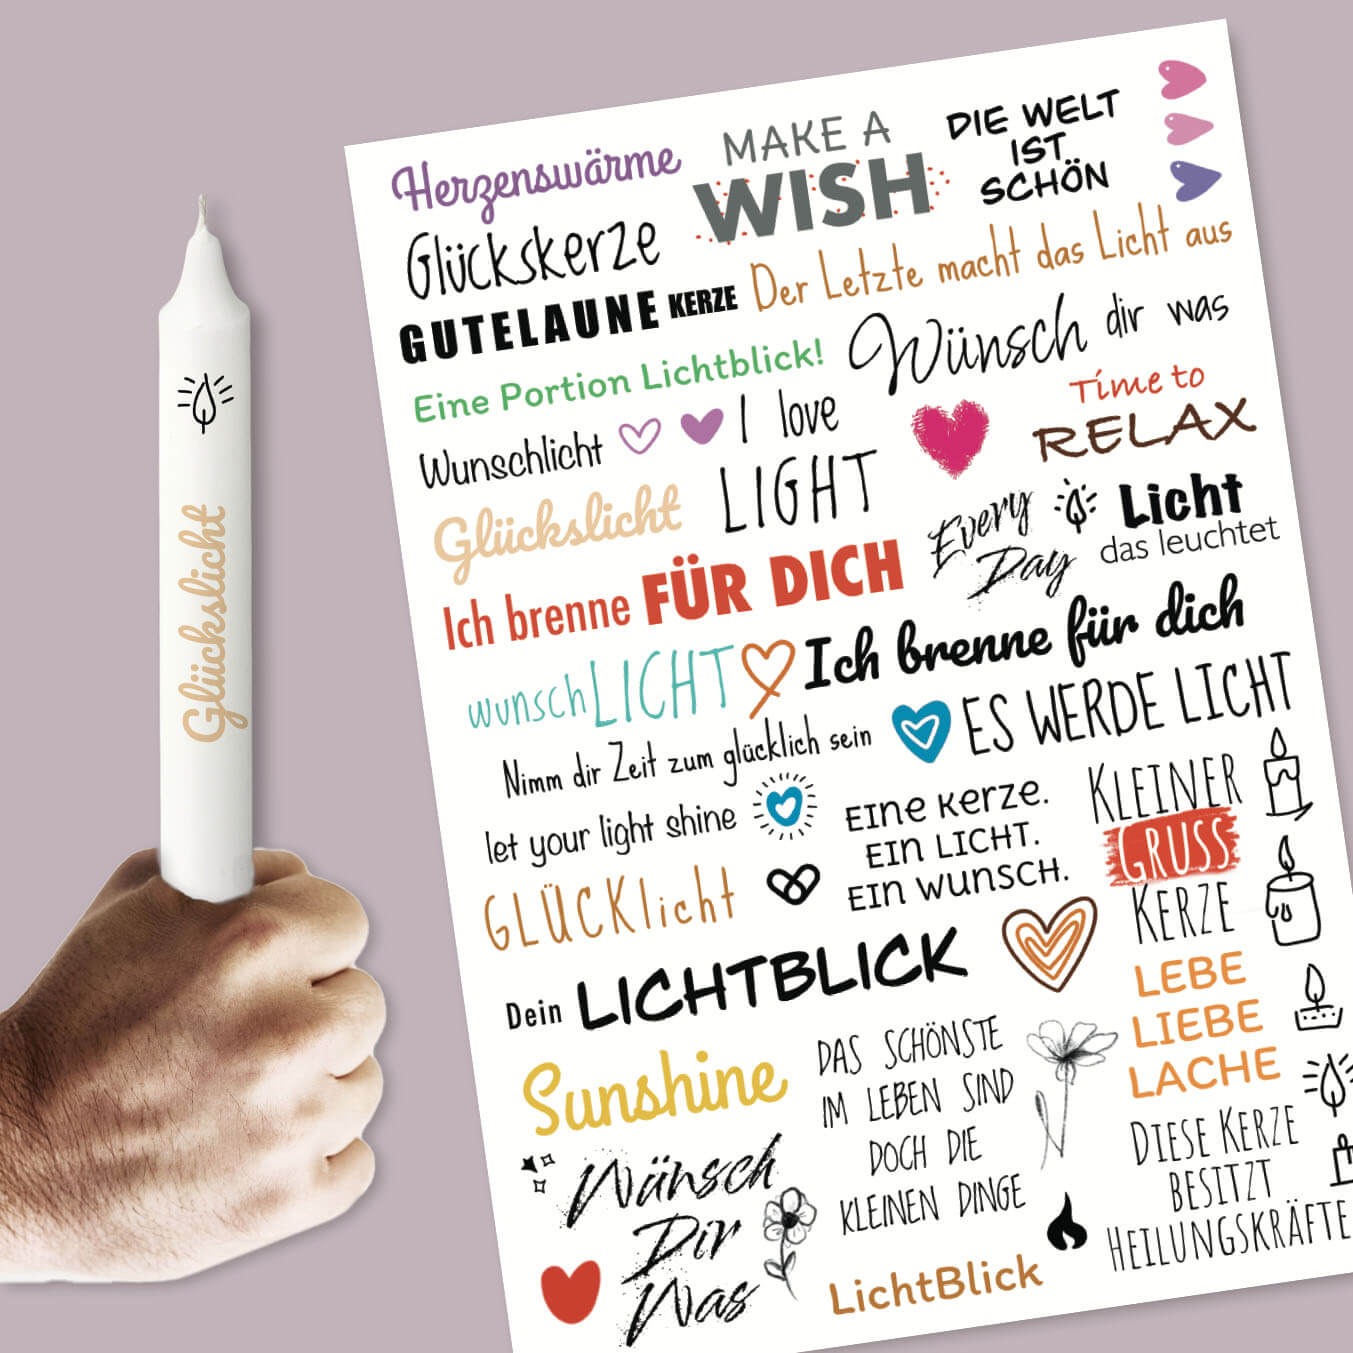 Glückslicht
Herzenswärme
MAKE A
WISH
DIE WELT
IST
SCHÖN
Glückskerze
GUTELAUNE KERZE
Der Letzte macht das Licht aus
Eine Portion Lichtblick!
Wünsch dir was
Wunschlicht
I love
LIGHT
Time to
RELAX
Glückslicht
Every
Day
Licht
das leuchtet
Ich brenne FÜR DICH
Ich brenne für dich
wunschLICHT
Nimm dir Zeit zum glücklich sein
ES WERDE LICHT
let your light shine
EINE KERZE.
EIN LICHT.
EIN WUNSCH.
KLEINER
GRUSS
KERZE
GLÜCKlicht
Dein LICHTBLICK
LEBE
LIEBE
LACHE
Sunshine
DAS SCHÖNSTE
IM LEBEN SIND
DOCH DIE
KLEINEN DINGE
DIESE KERZE
BESITZT
HEILUNGSKRÄFTE
Wünsch
Dir
Was
LichtBlick